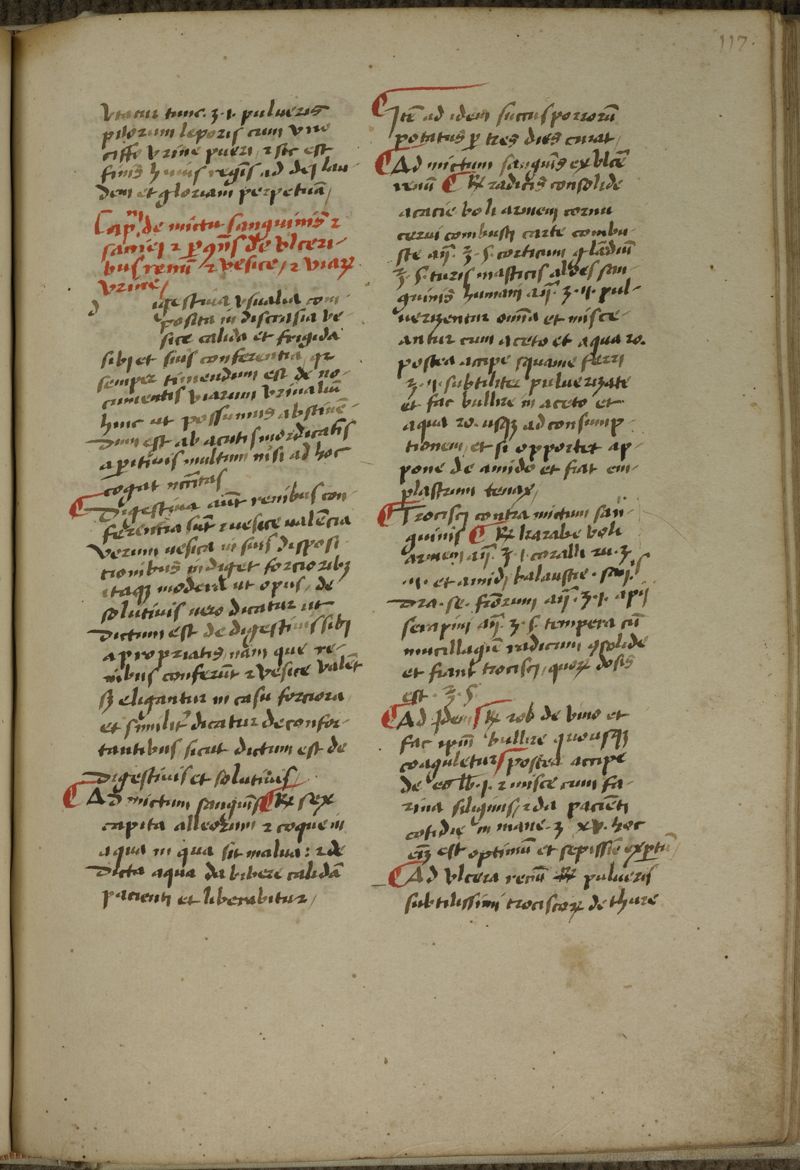 117.
vtatur tunc. ʒ. i. pulueris
pilorum leporis cum vno
ciffo vrine pueri, ⁊ sic est
finis huius regis ad dei lau-
dem et gloriam perpetuā/
Capᵐ. de mictu sanguinis ⁊
saniei ⁊ de vlceri-
bus renū ⁊ vesice, ⁊ viaꝝ
vrine/
d igestiua vsualia com-
posita in discrasia ve-
sice calida et frigida
sibi et suis conferentia, qr
semper timendum est de no-
cumentis viarum vrinaliū
hinc ut possumus abstinē-
dum est ab acutis mordicatīs
apitiuis multum nisi ad hoc
cogat
Digestiua aūt renibus con-
ferentia sūt ⁊ vesice valētia
verum vesica in suis disposi
tionibus indiget forcioribꝫ
itaqꝫ moderā ut opus, de
solutiuis vero dicatur ut
dictum est de digestiuis sibi
apropriatis, nam que re-
nibus conferūt ⁊ vesice valēt
sꝫ eligantur in casu forciora
et similiť dicatur de confor-
tantibus sicut dictum est de
digestiuis et solutiuis/
Ad mictum sanguīs ℞ sex
capita alleorum ⁊ coque in
aqua in qua sit malua: ⁊ de
dicta aqua da bibere calidā
pacienti et liberabitur/
Itē ad idem succus porrorū
potatus p tres dies curat/
Ad mictum sanguīs ex vlcē
renū ℞ radicis consolide
acacie boli armeni cornu
cerui combusti carte combu-
ste aā. ʒ. s. corticum glandiū
ʒ. s. turis masticis aloes san-
guinis humani aā. ʒ. ij. pul-
uerizentur omīa et misce-
antur cum aceto et aqua ro.
postea accipe squame ferri
ʒ. ij. subtiliter puluerizate
et fac bullire in aceto et
aqua ro. usqꝫ ad consump-
tionem, et si opportet ap-
pone de amido et fiat em-
plastrum tenax/
Trocisci contra mictum san-
guinis ℞ karabe boli
armeni aā. ʒ. i. coralli ru. ʒ
.ij. et amidi balaustie.
dra. se. aā. ʒ. i. apii
serapini aā. ʒ. s. tempera cū
mucillagiē radicum ꝯsolide
et fiant trocisci, quoꝝ dosis
est. ʒ. s
Ad idem ℞ rob de vino et
fac ipm bullire quousqꝫ
coaguletur, postea accipe
de eo lb. i. ⁊ misce cum fa-
rina siliginis, ⁊ da pacienti
cotidie in mane. ʒ xv. hoc
est optimū et sepissīe expertū
Ad vlcera renū ℞ pulueris
subtilissimi trociscoꝝ de thure